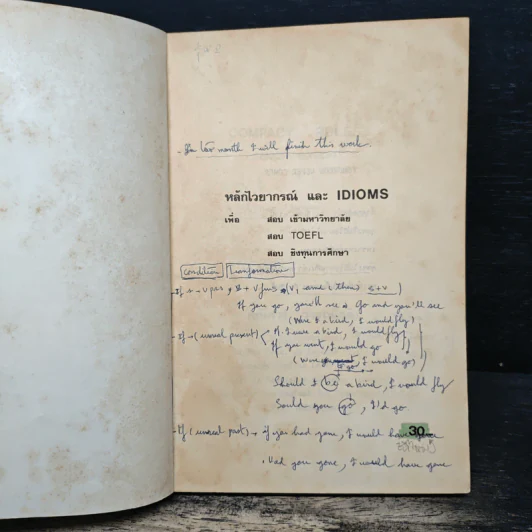 I will finish this work.
หลักไวยากรณ์ และ IDIOMS
เพื่อ สอบ เข้ามหาวิทยาลัย
สอบ TOEFL
สอบ ชิงทุนการศึกษา
condition Transformation
If you go, you'll see = Go and you'll see
(Were I a bird, I would fly)
- If → (unreal present) If I were a bird, I would fly
If you went, I would go
I would go)
Should I be a bird, I would fly
Sould you go, I'd go.
- If (unreal past) → if you had gone, I would have gone
30
. Had you gone, I would have gone